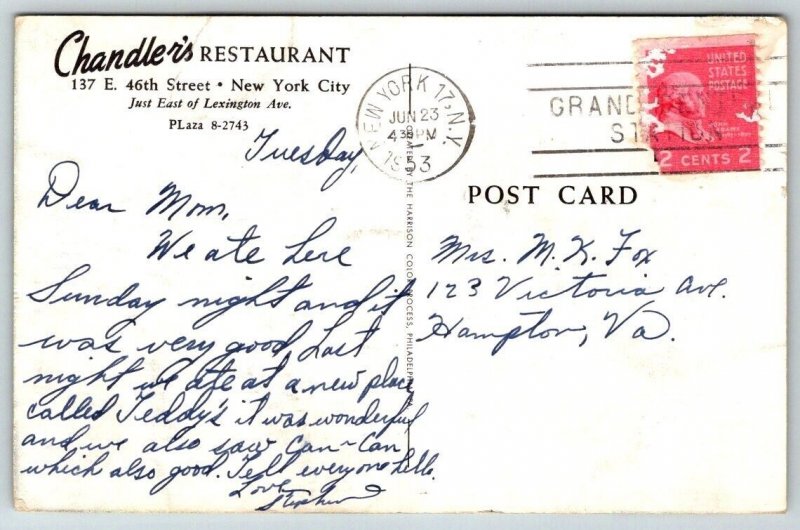 Chandler's RESTAURANT
137 E. 46th Street • New York City
Just East of Lexington Ave.
PLaza 8-2743
Tuesday,
Dear Mom,
We ate here
Sunday night and it
was very good Last
night we ate at a new place
called Teddy's it was wonderful
and we also saw Can-Can
which also good. Tell everyone hello.
Love
Stephen
NEW YORK 17, N.Y.
JUN 23
4 PM
1953
GRAND
STATION
UNITED
STATES
POSTAGE
JOHN
ADAMS
2 CENTS 2
BY THE HARRISON COLOR PROCESS, PHILADELPHIA
POST CARD
Mrs. M. K. Fox
123 Victoria Ave.
Hampton, Va.